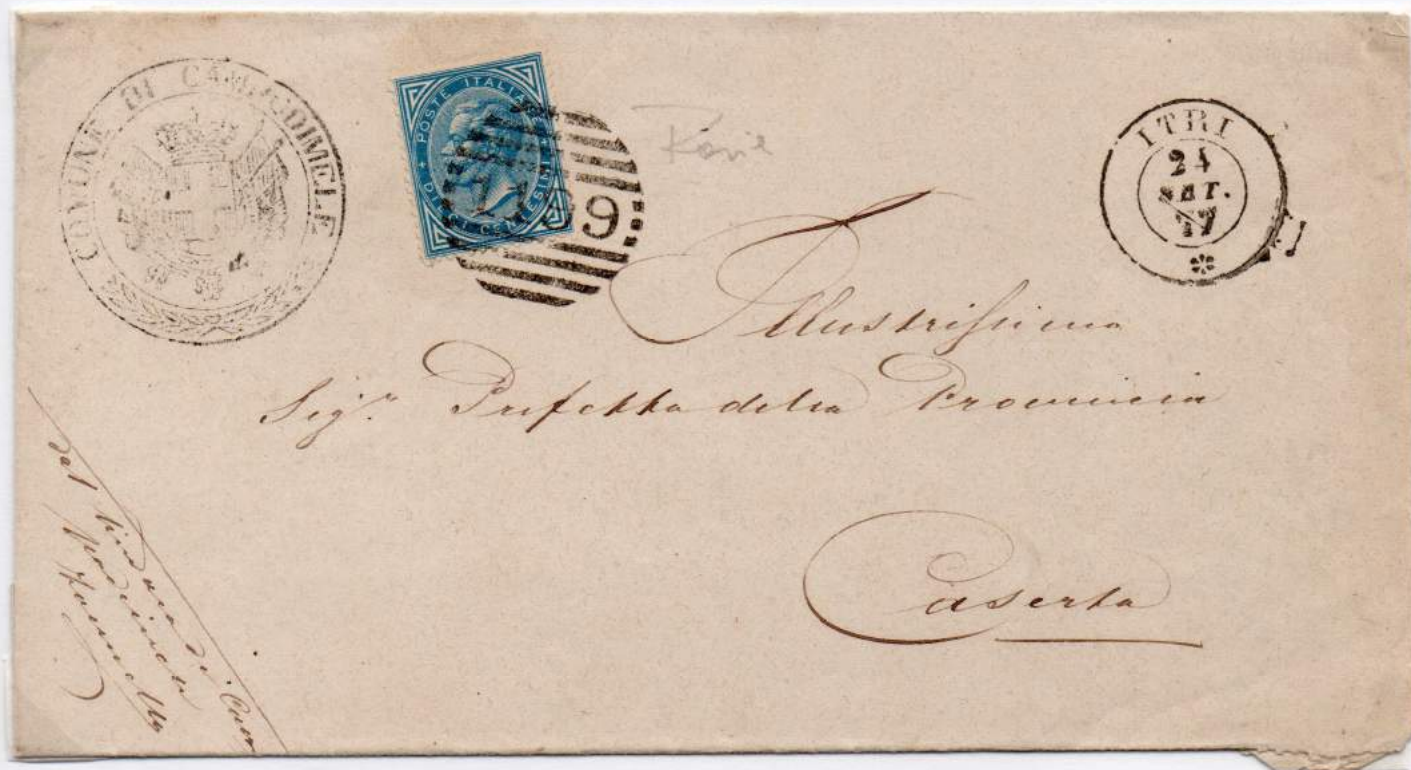 COMUNE DI CAMPODIMELE
POSTE ITALIANE
DIECI CENTESIMI
9
ITRI
24
SET.
77
Illustrissimo
Sig.r Prefetto della Provincia
Caserta
dal Sindaco di Cam
podimele